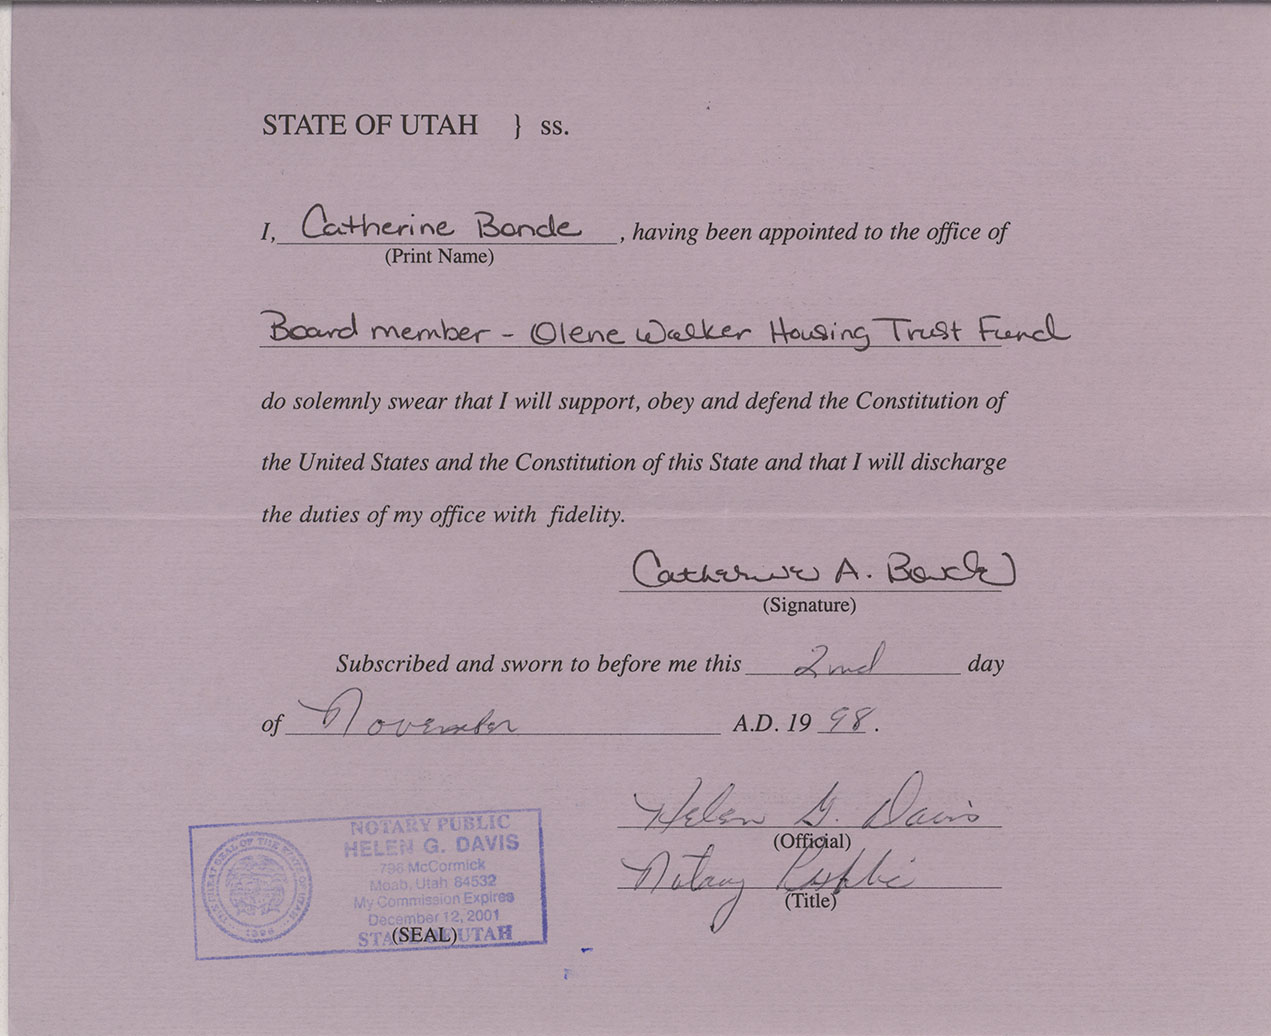 STATE OF UTAH } ss.
I, Catherine Bonde , having been appointed to the office of
(Print Name)
Board member - Olene Walker Housing Trust Fund
do solemnly swear that I will support, obey and defend the Constitution of
the United States and the Constitution of this State and that I will discharge
the duties of my office with fidelity.
Catherine A. Bonde
(Signature)
Subscribed and sworn to before me this 2nd day
of November A.D. 19 98.
Helen G. Davis
(Official)
Notary Public
(Title)
NOTARY PUBLIC
HELEN G. DAVIS
McCormick
Moab, Utah 84532
My Commission Expires
December 12, 2001
STATE OF UTAH
(SEAL)
THE GREAT SEAL OF THE STATE OF UTAH
1896